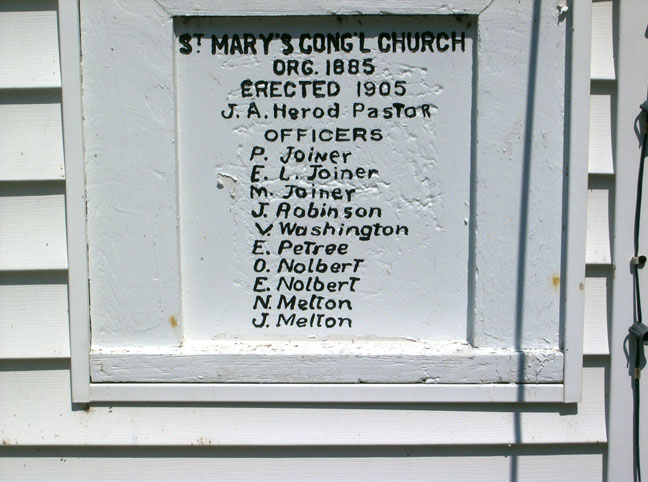 ST MARY'S CONG'L CHURCH
ORG. 1885
ERECTED 1905
J. A. Herod Pastor
OFFICERS
P. Joiner
E. L. Joiner
M. Joiner
J. Robinson
V. Washington
E. Petree
O. Nolbert
E. Nolbert
N. Melton
J. Melton